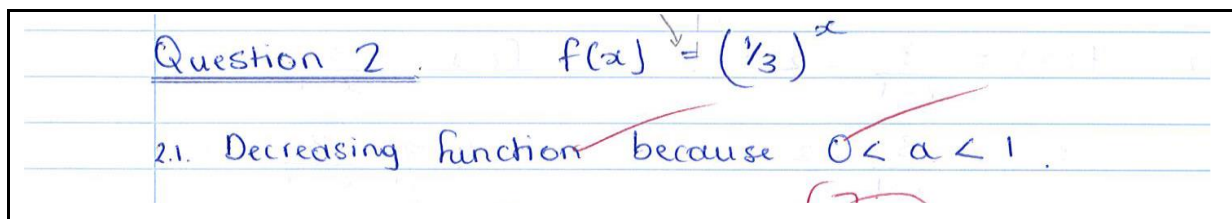 Question 2. f(x) = (1/3)^x
2.1. Decreasing function because 0 < a < 1.